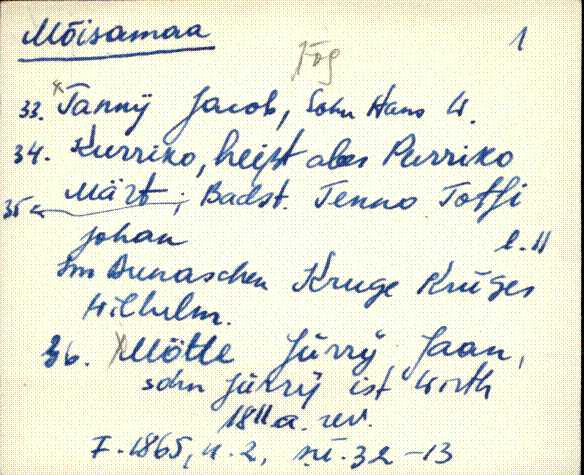 Mõisamaa 1
33. Tannÿ Jacob, Sohn Hans W.
34. Kurriko, heißt aber Purriko
35 Märt; Badst. Tenno Toffi
Johan l. 11
Im Dunaschen Kruge Krüges
Wilhelm.
36. Mötle Jürrÿ Jaan,
sohn Jürrÿ ist Wirth
1811 a. rev.
F. 1865, n. 2, nr. 32 -13